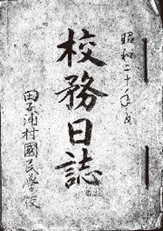 昭和二十年度
校務日誌
田子浦村國民學校